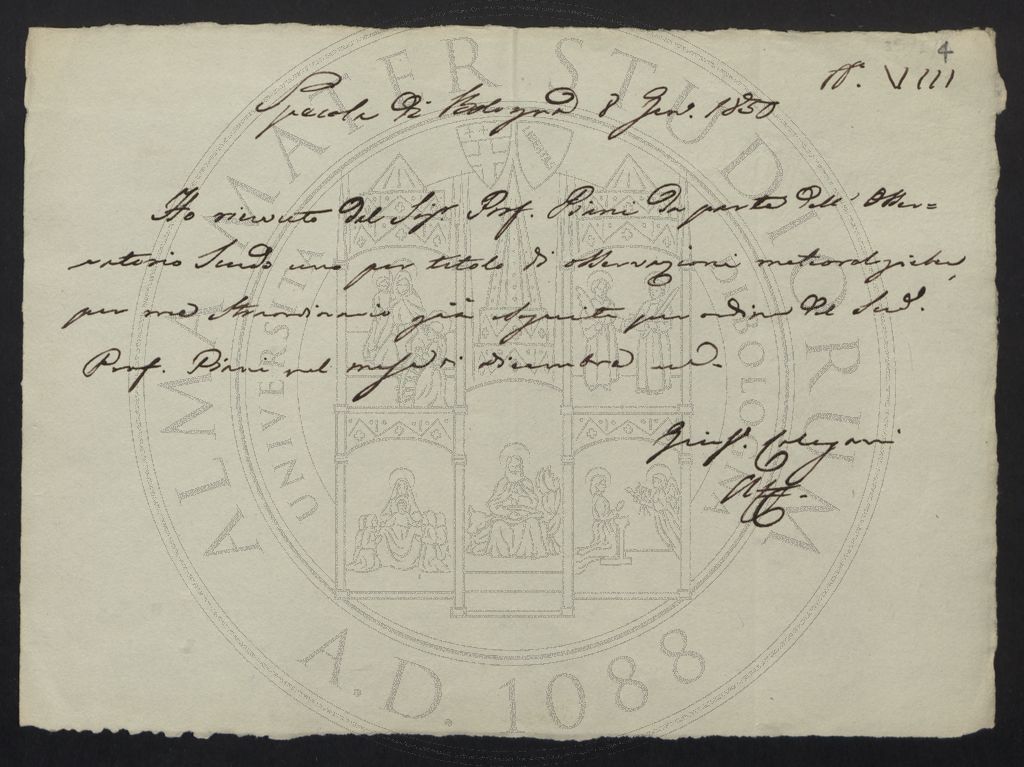 4
N°. VIII
Specola di Bologna 8 Gen. 1850
Ho ricevuto dal Sigr. Prof. Piani da parte dell' Osser=
vatorio Scudo uno per titolo di osservazioni meteorologiche
per me straordinario già eseguite per ordine del Sud.
Prof. Piani nel mese di dicembre
Gius. Calegari
ALMA MATER STUDIORUM
UNIVERSITÀ DI BOLOGNA
A.D. 1088